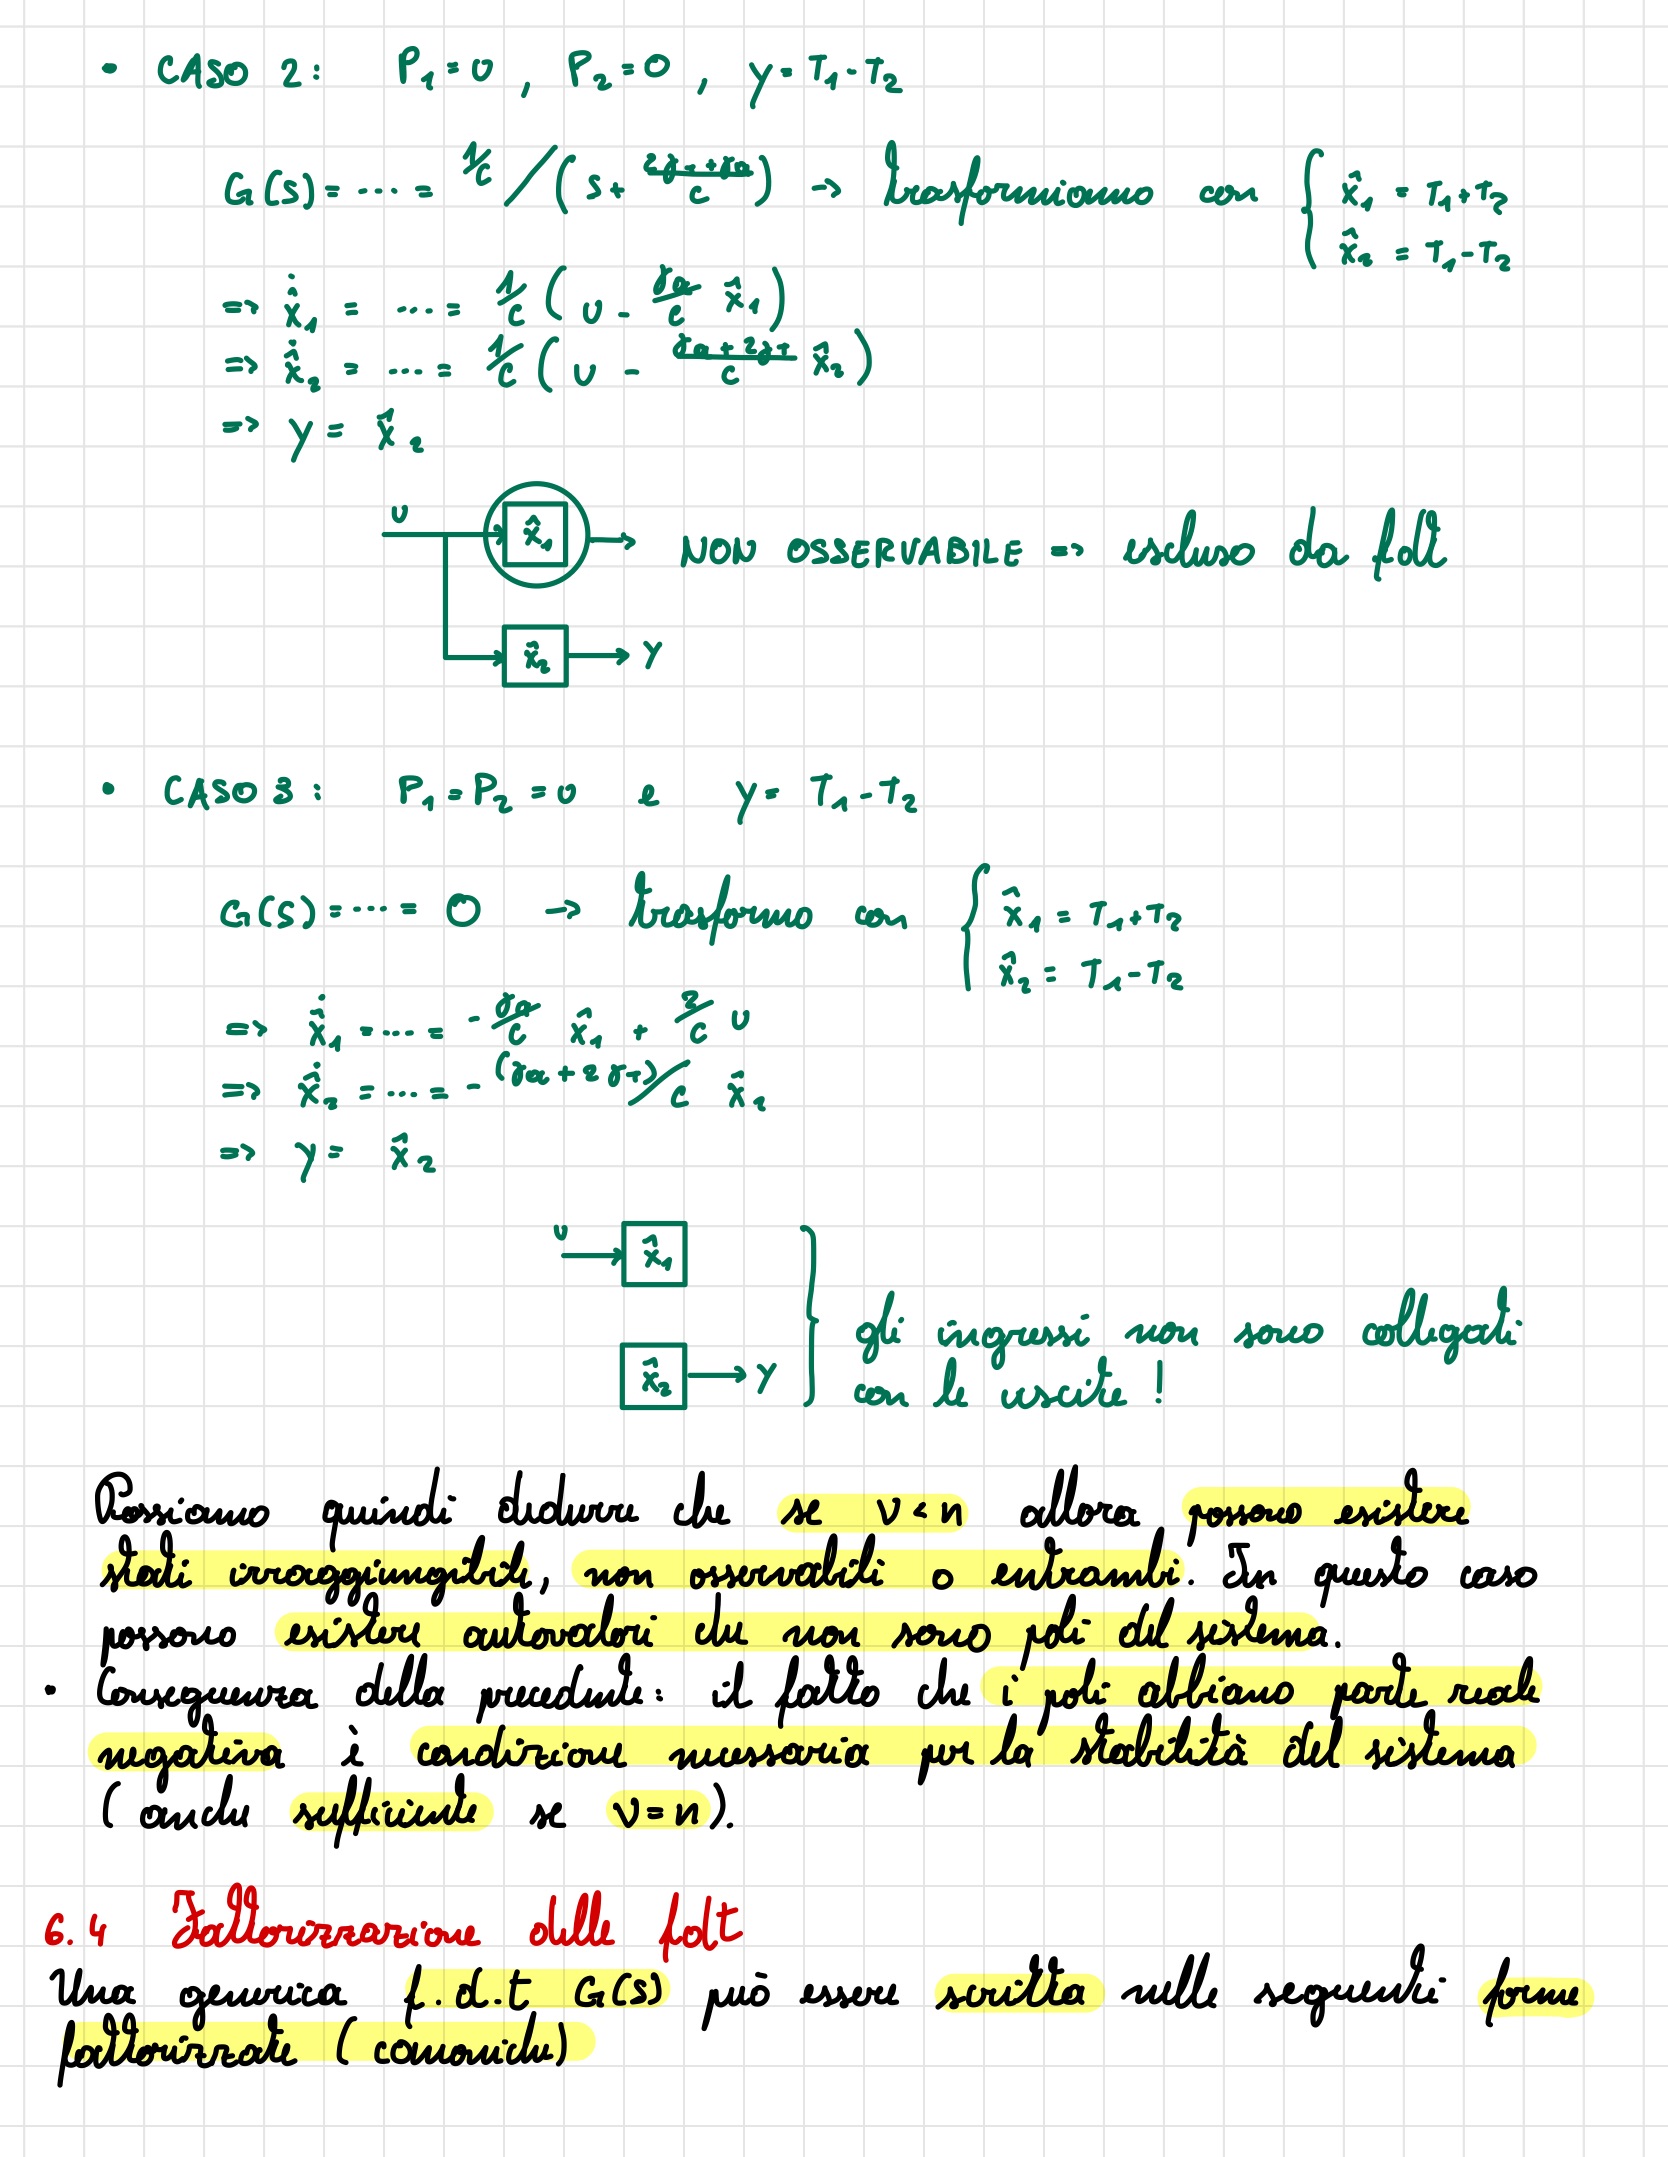 • CASO 2: P₁=υ , P₂=0 , y=T₁-T₂
G(s)= ---- = 1/c / (s+ (2γT+γa)/c) → trasformiamo con { x̂₁ = T₁+T₂
x̂₂ = T₁-T₂
=> ẋ̂₁ = ---- = 1/c ( υ - γa/c x̂₁ )
=> ẋ̂₂ = ---- = 1/c ( υ - (γa+2γT)/c x̂₂ )
=> y = x̂₂
υ x̂₁ → NON OSSERVABILE => escluso da fdt
x̂₂ → y
• CASO 3: P₁=P₂=υ e y= T₁-T₂
G(s)= ---- = 0 → trasformo con { x̂₁ = T₁+T₂
x̂₂ = T₁-T₂
=> ẋ̂₁ = ---- = - γa/c x̂₁ + 2/c υ
=> ẋ̂₂ = ---- = - (γa+2γT)/c x̂₂
=> y= x̂₂
υ → x̂₁
x̂₂ → y } gli ingressi non sono collegati
con le uscite!
Possiamo quindi dedurre che se ν<n allora possono esistere
stati irraggiungibili, non osservabili o entrambi. In questo caso
possono esistere autovalori che non sono poli del sistema.
• Conseguenza della precedente: il fatto che i poli abbiano parte reale
negativa è condizione necessaria per la stabilità del sistema
(anche sufficiente se ν=n).
6.4 Fattorizzazione delle fdt
Una generica f.d.t G(s) può essere scritta nelle seguenti forme
fattorizzate (canoniche)